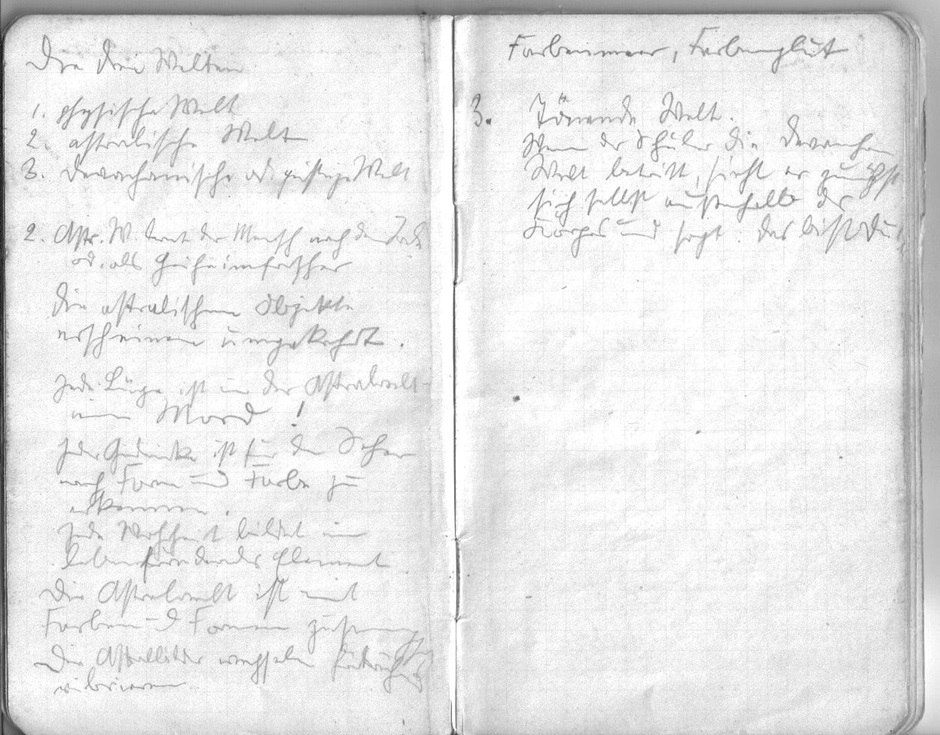 Die drei Welten
1. physische Welt
2. astralische Welt
3. Devachanische od. geistige Welt
2. Astr. W. tret der Mensch nach dem Tode
od. als Geheimforscher
Die astralischen Objekte
erscheinen umgekehrt.
Jede Lüge ist in der Astralwelt
ein Mord!
Jeder Gedanke ist für den Seher
nach Form und Farbe zu
erkennen.
Jede Wahrheit bildet ein
lebenförderndes Element
Die Astralwelt ist mit
Farben u Formen
Die wechseln
vibrieren
Farbenmeer, Farbenglut
3. Tönende Welt.
Wenn der Schüler die Devachan
Welt betritt, sieht er zunächst
sich selbst außerhalb des
Körpers und sagt: das bist Du!